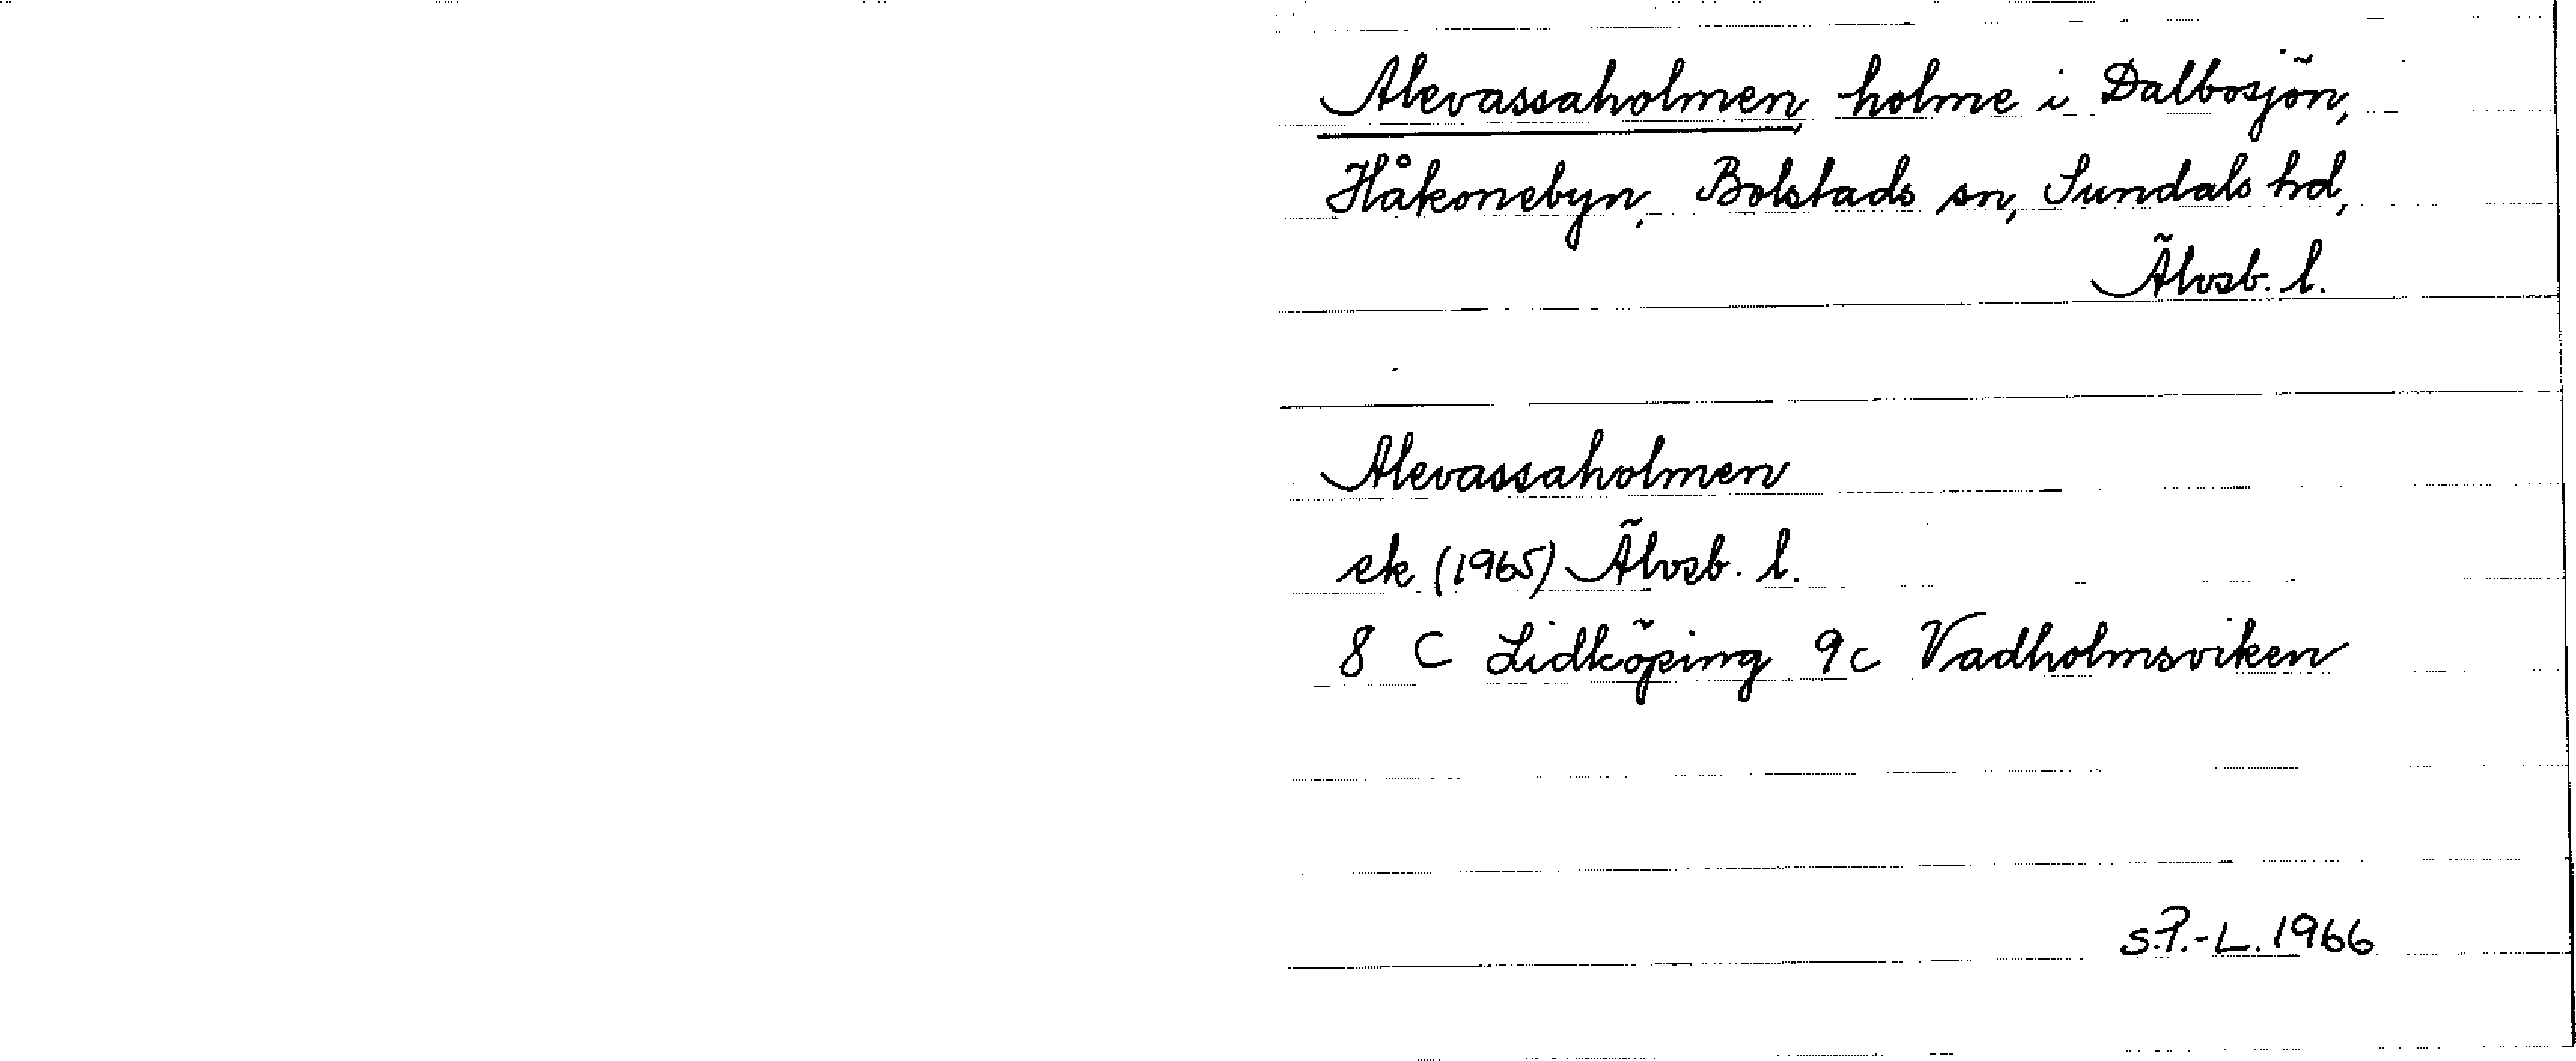 Alevassaholmen, holme i Dalbosjön,
Håkonebyn, Bolstads sn, Sundals hd,
Älvsb. l.
Alevassaholmen
ek (1965) Älvsb. l.
8 C Lidköping 9c Vadholmsviken
S.P.-L. 1966